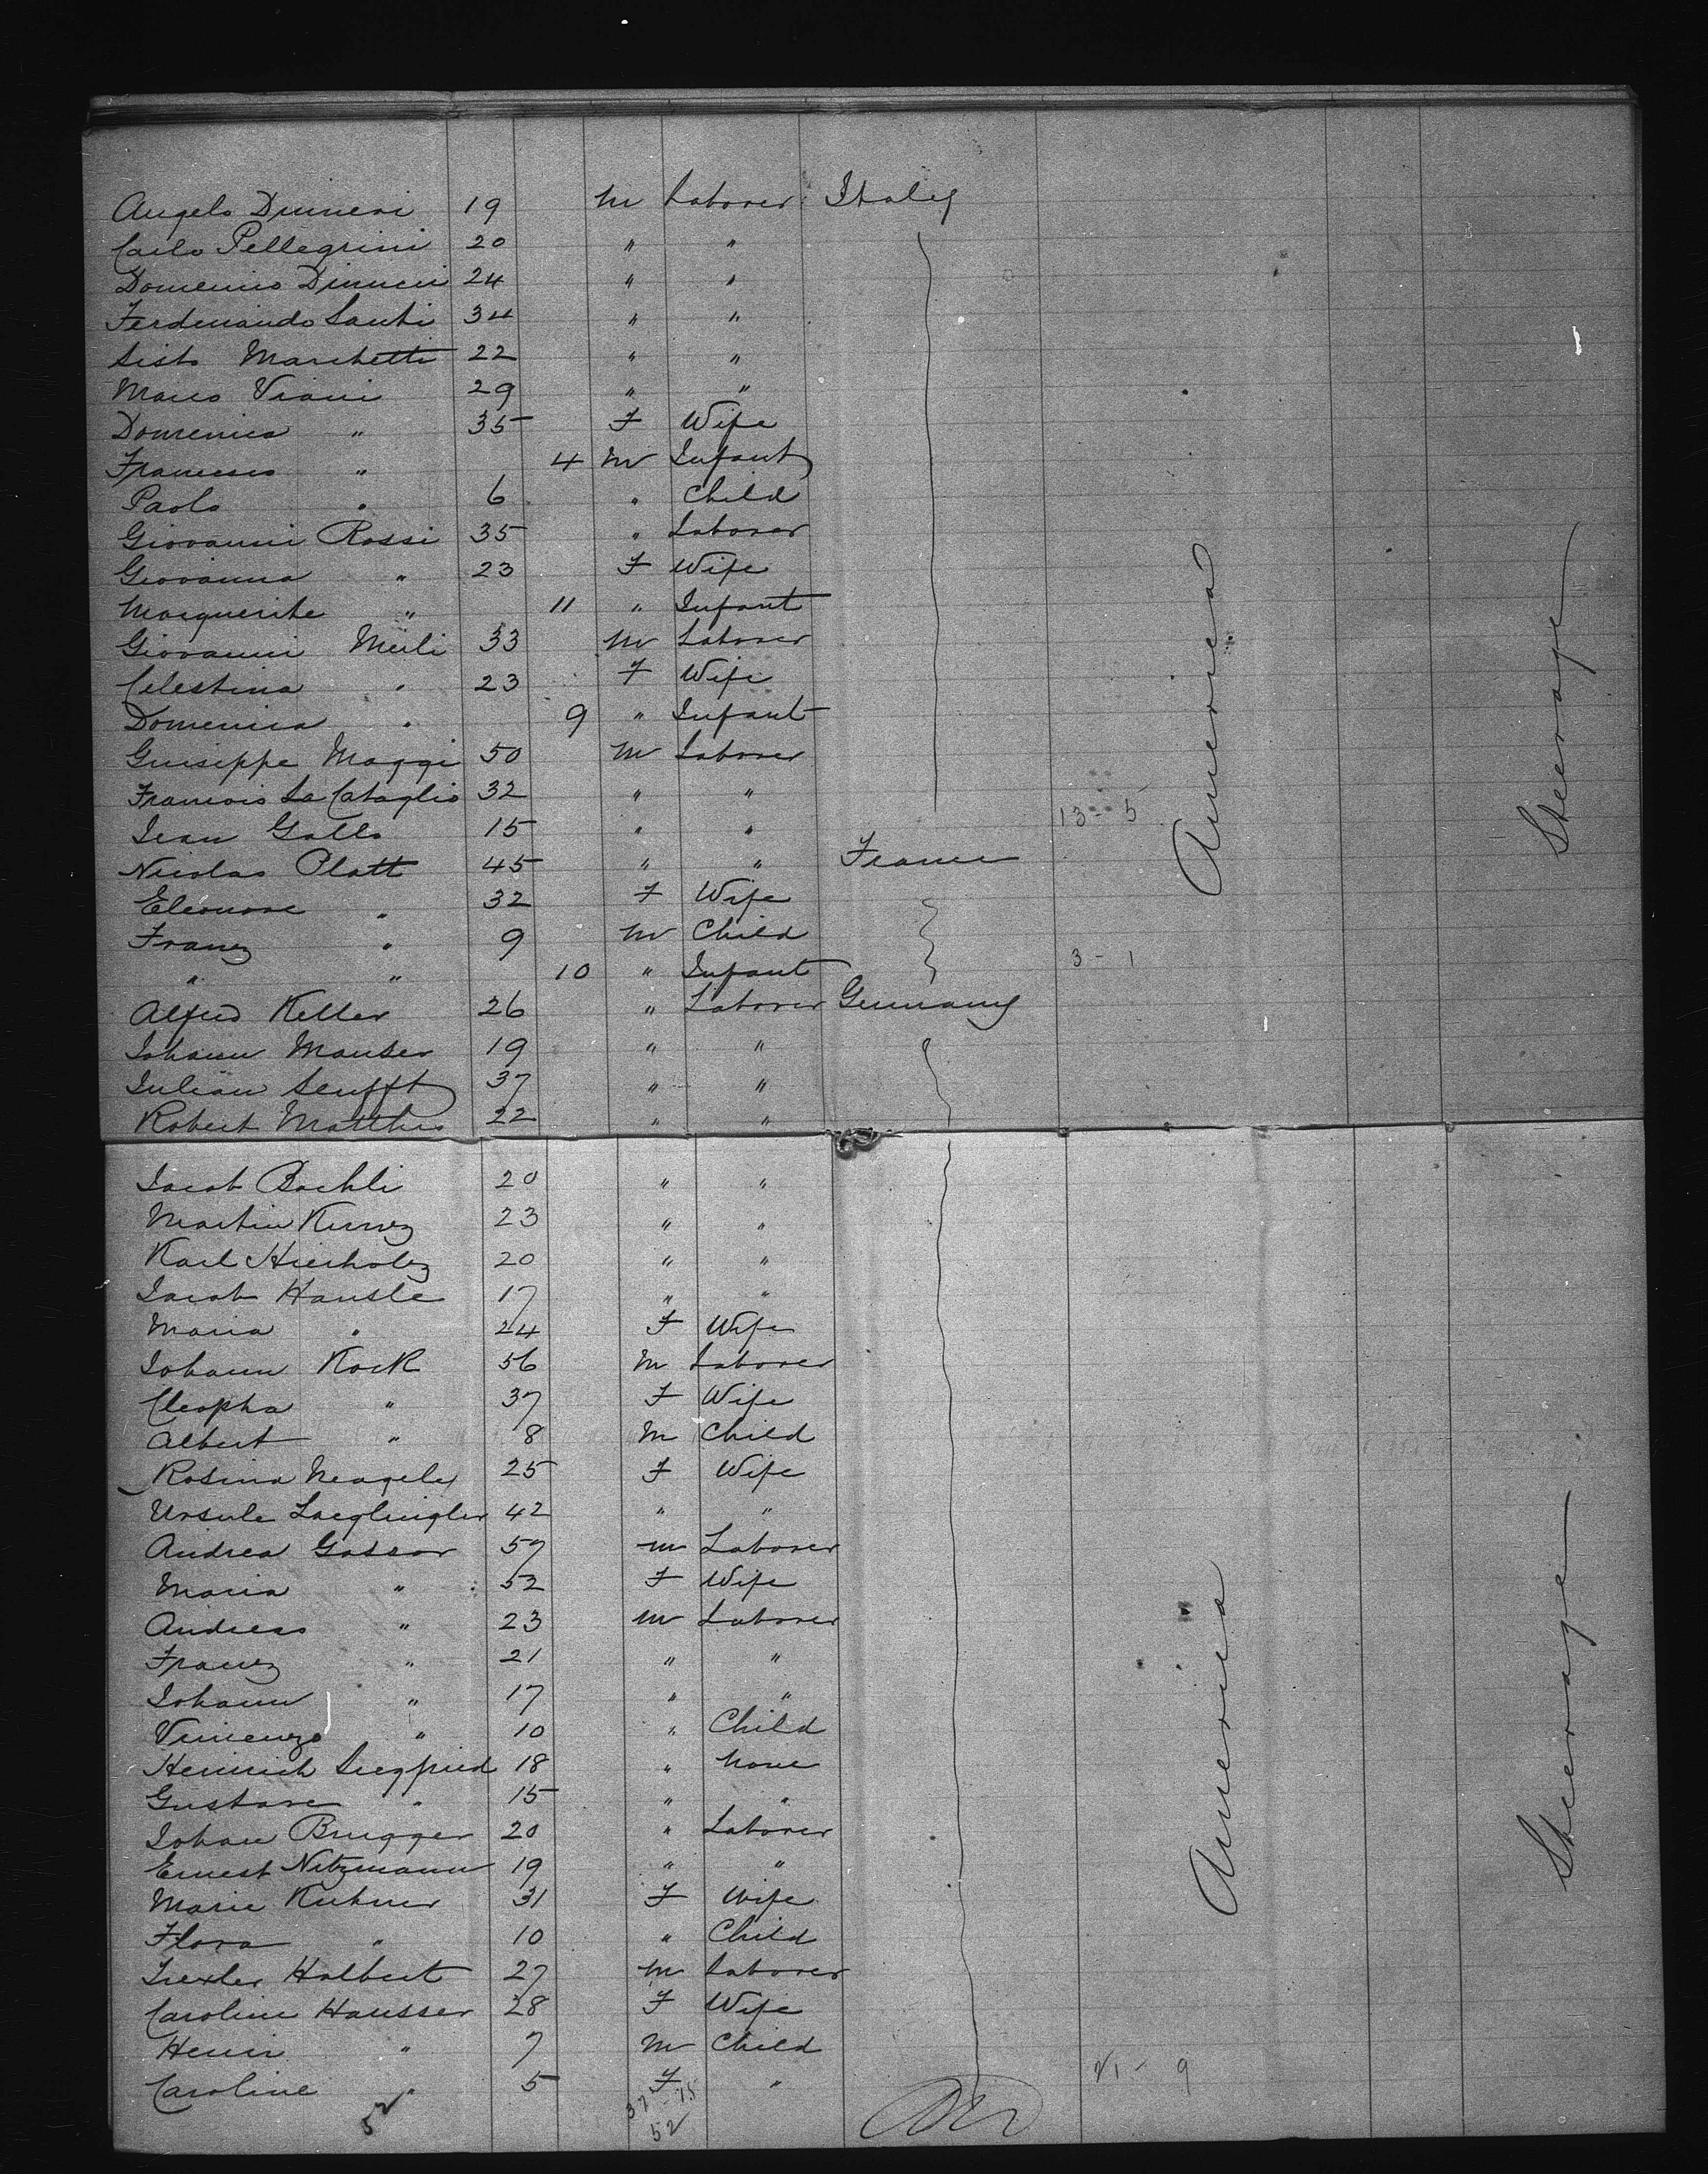 Angelo Dinneri 19 M Laborer Italy
Carlo Pellegrini 20 " "
Domenico Dinucci 24 " "
Ferdinando Santi 34 " "
Sisto Marchetti 22 " "
Marco Viani 29 " "
Domenica " 35 F Wife
Francesco " 4 M Infant
Paolo " 6 " Child
Giovanni Rossi 35 " Laborer
Giovanna " 23 F Wife
Marguerite " 11 " Infant
Giovanni Meili 33 M Laborer
Celestina " 23 F Wife
Domenica " 9 " Infant
Guiseppe Maggi 50 M Laborer
Francois La Cataglio 32 " "
Jean Gallo 15 " " 13 - 5
Nicolas Platt 45 " " France
Eleonore " 32 F Wife
Franz " 9 M Child
" " 10 " Infant 3 - 1
Alfred Keller 26 " Laborer Germany
Johann Manser 19 " "
Julian Senfft 37 " "
Robert Matthis 22 " "
America
Steerage
Jacob Bachli 20 " "
Martin Kunz 23 " "
Karl Hierholz 20 " "
Jacob Hansle 17 " "
Maria " 24 F Wife
Johann Kock 56 M Laborer
Cleopha " 37 F Wife
Albert " 8 M Child
Rosina Neagely 25 F Wife
Ursule 42 " "
Andrea Gassar 57 M Laborer
Maria " 52 F Wife
Andreas " 23 M Laborer
Franz " 21 " "
Johann " 17 " "
Vincenzo " 10 " Child
Heinrich Siegfried 18 " None
Gustave " 15 " "
Johan Brugger 20 " Laborer
Ernest Nitzmann 19 " "
Marie Kuhner 31 F Wife
Flora " 10 " Child
Halbert 27 M Laborer
Caroline Hausser 28 F Wife
Henri " 7 M Child
Caroline " 5 F " 21 - 9
America
Steerage
52 37 - 15
52